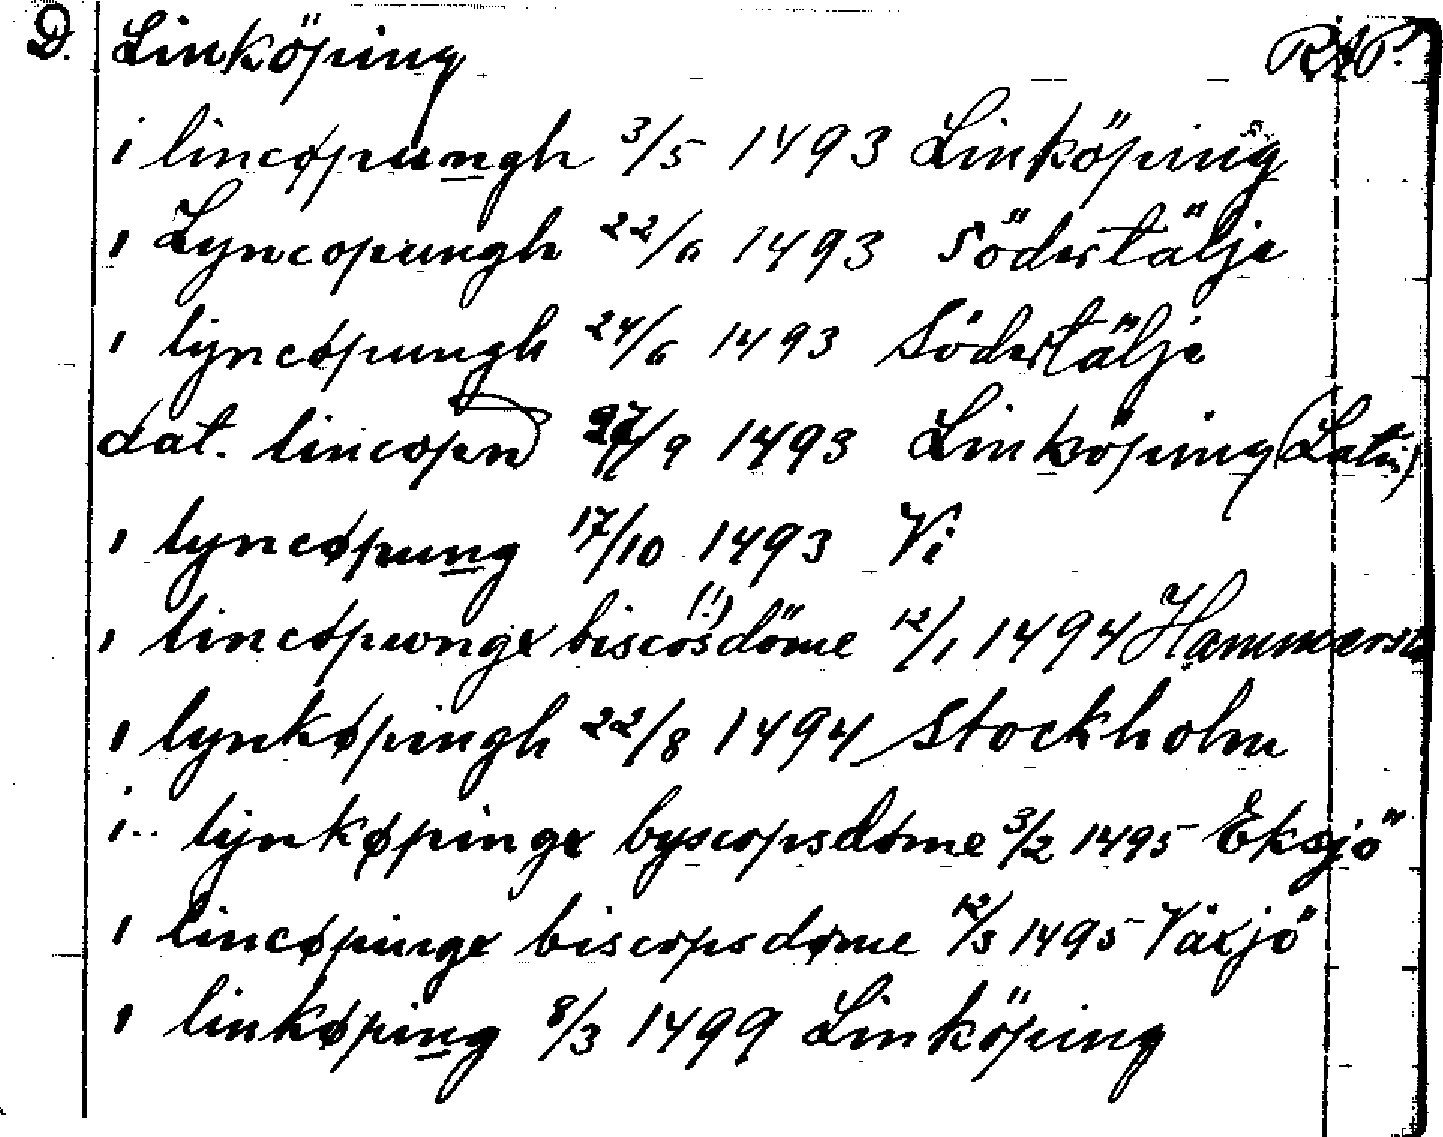 D. Linköping RAP.
i lincøpungh 3/5 1493 Linköping
i Lyncopungh 22/6 1493 Södertälje
i lyncøpungh 24/6 1493 Södertälje
dat. lincopn 1493 Linköping (Latin)
i lyncøpung 17/10 1493 Vi
i lincøpungx biscos(!)döme 12/1 1494 Hammersta
i lynkøpingh 22/8 1494 Stockholm
i.. lynkøpingx byscopsdøme 3/2 1495 Eksjö
i lincøpingx biscopsdøme 12/3 1495 Växjö
i linkøping 8/3 1499 Linköping